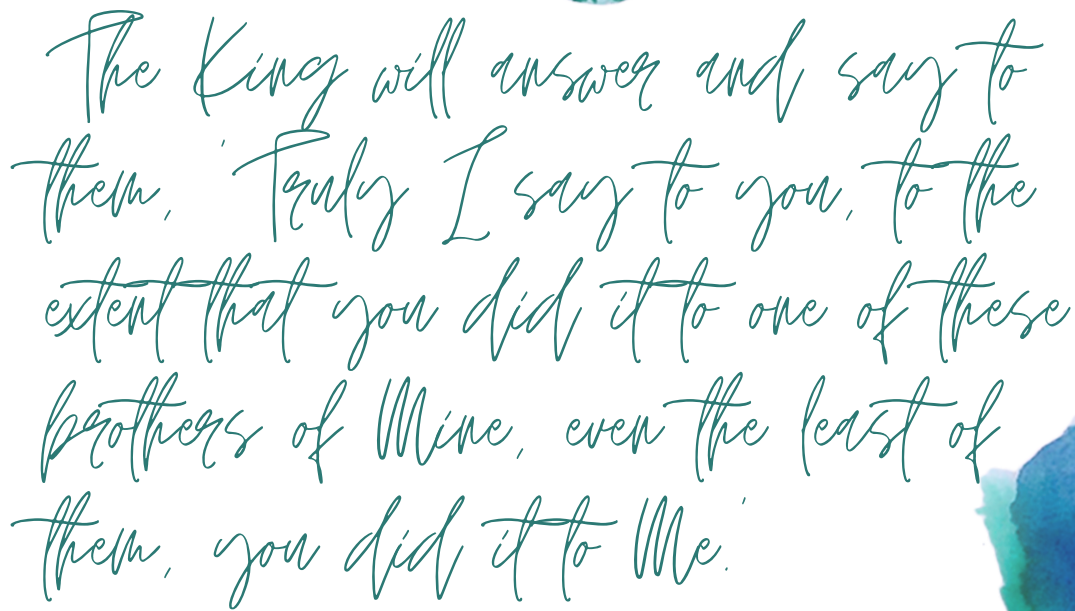 The King will answer and say to
them, 'Truly I say to you, to the
extent that you did it to one of these
brothers of Mine, even the least of
them, you did it to Me.'